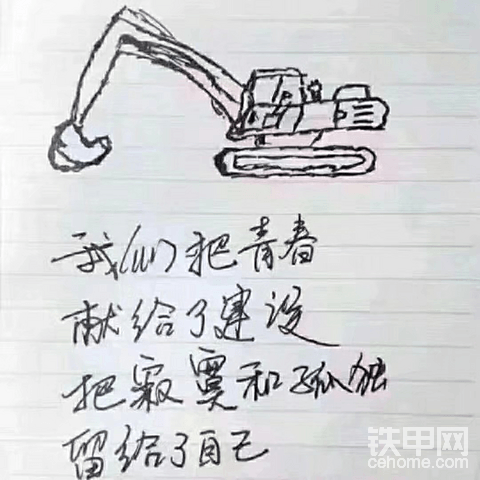 我们把青春
献给了建设
把寂寞和孤独
留给了自己
铁甲网
cehome.com